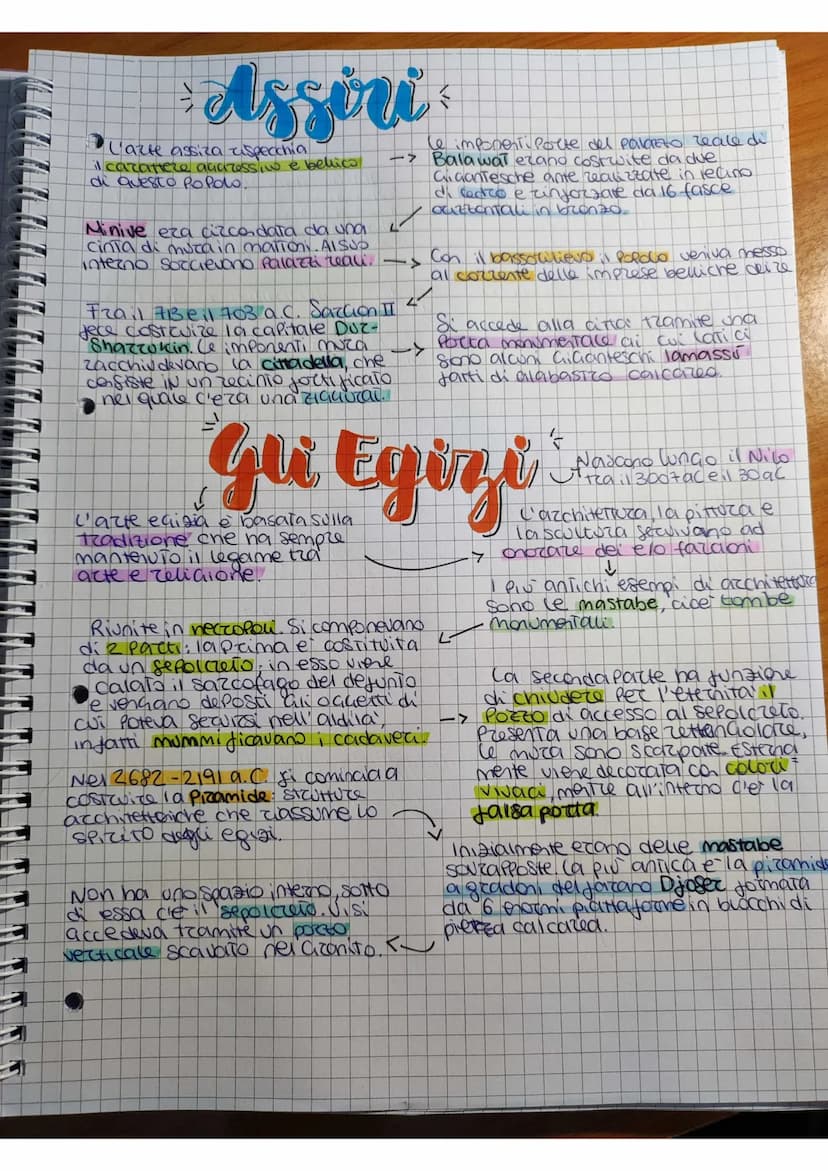 Assiri
L'arte assira rispecchia
il carattere aggressivo e bellico
di questo popolo.
Le imponenti porte del palazzo reale di
Balawat erano costruite da due
gigantesche ante realizzate in legno
di cedro e rinforzate da 16 fasce
orizzontali in bronzo.
Ninive era circondata da una
cinta di mura in mattoni. Al suo
interno sorgevano palazzi reali.
Con il bassorilievo il popolo veniva messo
al corrente delle imprese belliche del re
Fra il 713 e il 703 a.C. Sargon II
fece costruire la capitale Dur-
Sharrukin. Le imponenti mura
racchiudevano la cittadella, che
consiste in un recinto fortificato
nel quale c'era una ziqqurat.
Si accede alla città tramite una
porta monumentale ai cui lati ci
sono alcuni giganteschi lamassù
fatti di alabastro calcareo.
Gli Egizi
Nascono lungo il Nilo
tra il 3007 a.C e il 30 a.C
L'arte egizia è basata sulla
tradizione che ha sempre
mantenuto il legame tra
arte e religione.
L'architettura, la pittura e
la scultura servivano ad
onorare dei e/o faraoni
I più antichi esempi di architettura
sono le mastabe, cioè tombe
monumentali.
Riunite in necropoli. Si componevano
di 2 parti: la prima è costituita
da un sepolcreto, in esso viene
calato il sarcofago del defunto
e vengano deposti gli oggetti di
cui poteva servirsi nell'aldilà,
infatti mummificavano i cadaveri.
La seconda parte ha funzione
di chiudere per l'eternità il
pozzo di accesso al sepolcreto.
Presenta una base rettangolare,
le mura sono scarpate. Esterna
mente viene decorata con colori
vivaci, mentre all'interno c'è la
falsa porta.
Nel 2682-2191 a.C si comincia a
costruire la Piramide: strutture
architettoniche che riassume lo
spirito degli egizi.
Inizialmente erano delle mastabe
sovrapposte. La più antica è la piramide
a gradoni del faraono Djoser formata
da 6 enormi piattaforme in blocchi di
pietra calcarea.
Non ha uno spazio interno, sotto
di essa c'è il sepolcreto. Vi si
accedeva tramite un pozzo
verticale scavato nel granito.